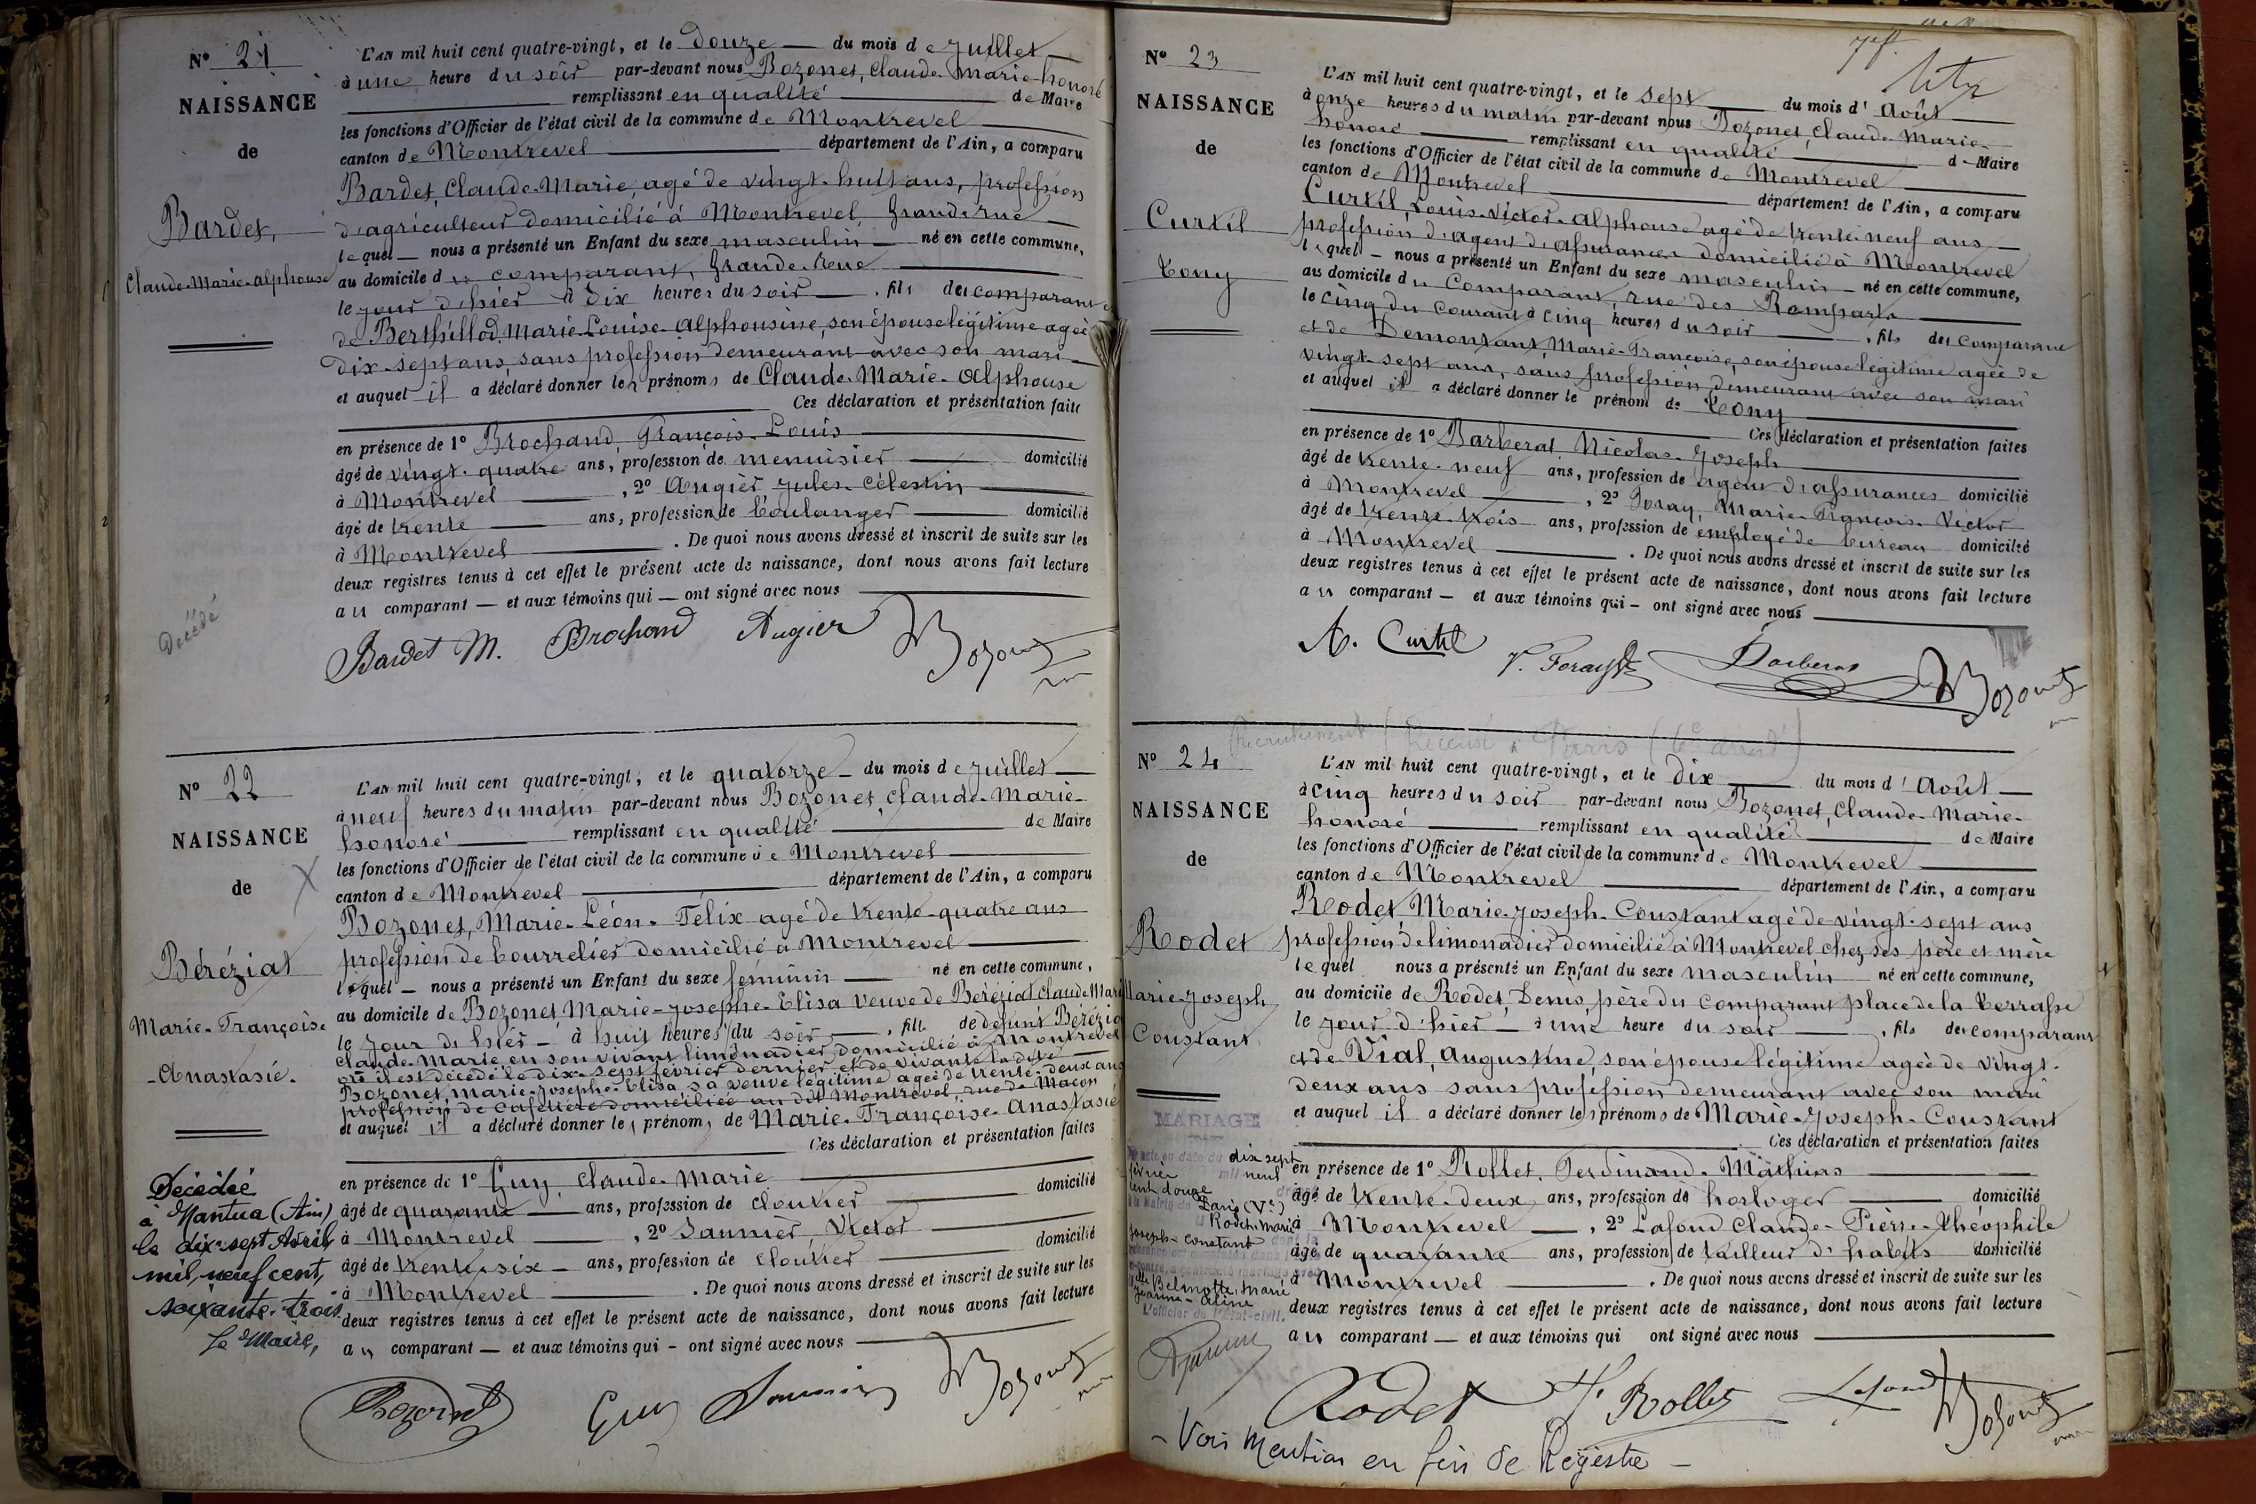 N° 21
NAISSANCE
de
Bardet,
Claude-Marie-Alphonse
Décédé
L'AN mil huit cent quatre-vingt, et le douze — du mois de juillet
à une heure du soir par-devant nous Bozonet, Claude-Marie-honoré
remplissant en qualité — de Maire
les fonctions d'Officier de l'état civil de la commune de Montrevel
canton de Montrevel — département de l'Ain, a comparu
Bardet, Claude-Marie, agé de vingt-huit ans, profession
d'agriculteur domicilié à Montrevel, Grande-rue
lequel — nous a présenté un Enfant du sexe masculin — né en cette commune,
au domicile du comparant, Grande-Rue
le jour d'hier à dix heures du soir — , fils des comparant et
de Berthillod, Marie-Louise-Alphonsine, son épouse légitime agée
dix-sept ans, sans profession demeurant avec son mari
et auquel il a déclaré donner les prénoms de Claude-Marie-Alphonse
Ces déclaration et présentation faites
en présence de 1° Brochand, François-Louis
âgé de vingt-quatre ans, profession de menuisier — domicilié
à Montrevel — , 2° Augier Jules-Célestin
âgé de trente — ans, profession de boulanger — domicilié
à Montrevel — . De quoi nous avons dressé et inscrit de suite sur les
deux registres tenus à cet effet le présent acte de naissance, dont nous avons fait lecture
au comparant — et aux témoins qui — ont signé avec nous
Bardet M. Brochand Augier Bozonet
N° 22
NAISSANCE
de
Béréziat
Marie-Françoise
-Anastasie.
Décédée
à Nantua (Ain)
le dix-sept Avril
mil neuf cent
soixante-trois
Le Maire,
L'AN mil huit cent quatre-vingt, et le quatorze — du mois de juillet
à neuf heures du matin par-devant nous Bozonet, Claude-Marie-
honoré — remplissant en qualité — de Maire
les fonctions d'Officier de l'état civil de la commune de Montrevel
canton de Montrevel — département de l'Ain, a comparu
Bozonet, Marie-Léon-Félix agé de trente-quatre ans
profession de bourrelier domicilié à Montrevel
lequel — nous a présenté un Enfant du sexe féminin — né en cette commune,
au domicile de Bozonet Marie-Josephe-Elisa veuve de Béréziat Claude Marie
le jour d'hier — à huit heures du soir — , fille de défunt Béréziat
Claude-Marie en son vivant limonadier, domicilié à Montrevel
où il est décédé le dix-sept février dernier et de vivante la dite
Bozonet, Marie-Josephe-Elisa sa veuve légitime agée de trente-deux ans
profession de cafetière domiciliée au dit Montrevel, rue de Macon
et auquel il a déclaré donner les prénoms de Marie-Françoise-Anastasie
Ces déclaration et présentation faites
en présence de 1° Guy, Claude-Marie
âgé de quarante — ans, profession de cloutier — domicilié
à Montrevel — , 2° Saunier, Victor
âgé de trente-six — ans, profession de cloutier — domicilié
à Montrevel — . De quoi nous avons dressé et inscrit de suite sur les
deux registres tenus à cet effet le présent acte de naissance, dont nous avons fait lecture
au comparant — et aux témoins qui — ont signé avec nous
Bozonet Guy Saunier Bozonet
N° 23
NAISSANCE
de
Curtil
Tony
L'AN mil huit cent quatre-vingt, et le sept — du mois d'Août
à onze heures du matin par-devant nous Bozonet, Claude-Marie-
honoré — remplissant en qualité — de Maire
les fonctions d'Officier de l'état civil de la commune de Montrevel
canton de Montrevel — département de l'Ain, a comparu
Curtil, Louis-Victor-Alphonse agé de trente-neuf ans
profession d'agent d'assurances domicilié à Montrevel
lequel — nous a présenté un Enfant du sexe masculin — né en cette commune,
au domicile du Comparant, rue des Remparts
le cinq du courant à cinq heures du soir — , fils des comparant
et de Demontant, Marie-Françoise, son épouse légitime agée de
vingt-sept ans, sans profession demeurant avec son mari
et auquel il a déclaré donner le prénom de Tony
Ces déclaration et présentation faites
en présence de 1° Barberat, Nicolas-Joseph
âgé de trente-neuf ans, profession de agent d'assurances domicilié
à Montrevel — , 2° Foray, Marie-François-Victor
âgé de trente-trois ans, profession de employé de bureau domicilié
à Montrevel — . De quoi nous avons dressé et inscrit de suite sur les
deux registres tenus à cet effet le présent acte de naissance, dont nous avons fait lecture
au comparant — et aux témoins qui — ont signé avec nous
A. Curtil V. Foray Barberat Bozonet
N° 24
NAISSANCE
de
Rodet
Marie-Joseph
Constant
MARIAGE
dix sept
mil neuf
cent douze
Paris (Ve)
Rodet Marie
Joseph-Constant
Belmotte, Marie
Jeanne-Aline
L'officier de l'état-civil.
L'AN mil huit cent quatre-vingt, et le dix — du mois d'Août
à cinq heures du soir par-devant nous Bozonet, Claude-Marie-
honoré — remplissant en qualité — de Maire
les fonctions d'Officier de l'état civil de la commune de Montrevel
canton de Montrevel — département de l'Ain, a comparu
Rodet, Marie-Joseph-Constant agé de vingt-sept ans
profession de limonadier domicilié à Montrevel chez ses père et mère
lequel nous a présenté un Enfant du sexe masculin né en cette commune,
au domicile de Rodet, Denis, père du comparant place de la terrasse
le jour d'hier — à une heure du soir — , fils des comparant
et de Vial, Augustine, son épouse légitime agée de vingt-
deux ans sans profession demeurant avec son mari
et auquel il a déclaré donner les prénoms de Marie-Joseph-Constant
Ces déclaration et présentation faites
en présence de 1° Rollet, Ferdinand-Mathias
âgé de trente-deux ans, profession de horloger — domicilié
à Montrevel — , 2° Lafond Claude-Pierre-théophile
âgé de quarante ans, profession de tailleur d'habits domicilié
à Montrevel — . De quoi nous avons dressé et inscrit de suite sur les
deux registres tenus à cet effet le présent acte de naissance, dont nous avons fait lecture
au comparant — et aux témoins qui ont signé avec nous
Rodet F. Rollet Lafond Bozonet
- Voir Mention en fin de Registre -